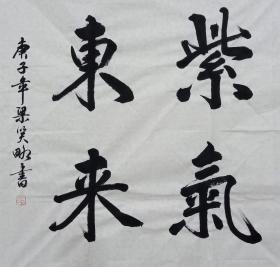 紫氣
東来
庚子年梁笑畋書